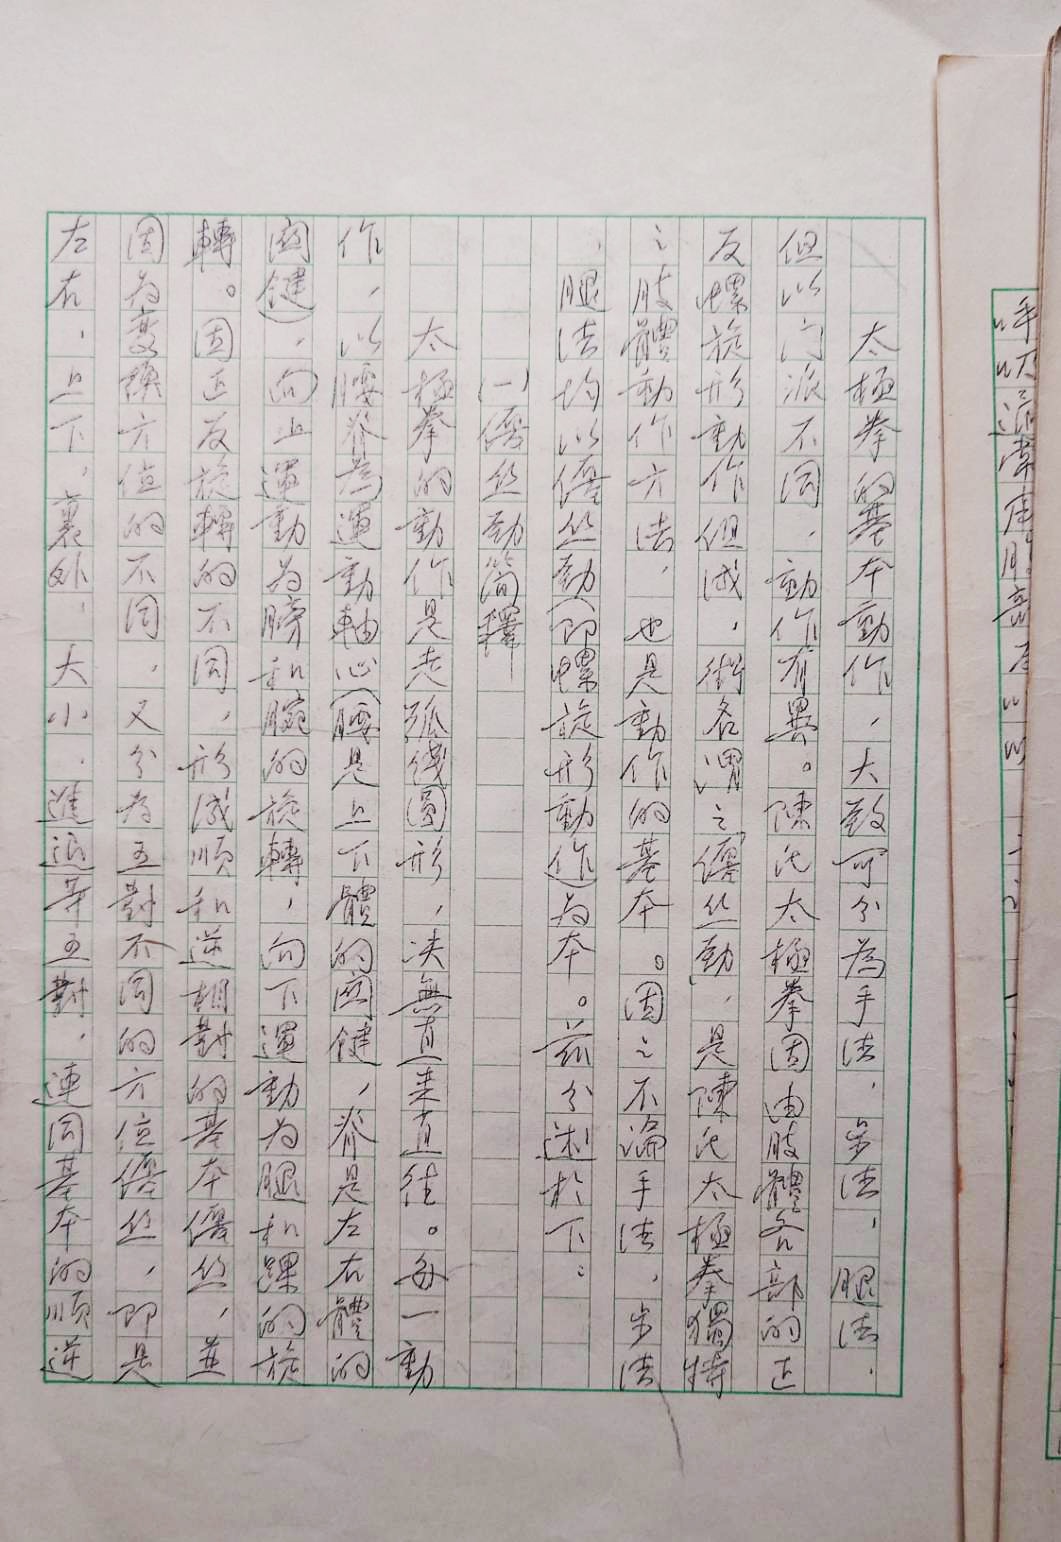 太極拳的基本動作，大致可分為手法，步法，腿法．
但以门派不同，動作有異。陳氏太極拳因由肢體各部的正
反螺旋形動作但成，術名谓之纏丝勁，是陳氏太極拳獨特
之肢體動作方法，也是動作的基本。因之不論手法，步法
，腿法均以纏丝勁(即螺旋形動作)為本。茲分述於下：
(一)纏丝勁简釋
太極拳的動作是走弧线圓形，决無直来直往。每一動
作，以腰脊為運動軸心(腰是上下體的関健，脊是左右體的
関健)，向上運動为膀和腕的旋轉，向下運動为腿和踝的旋
轉。因正反旋轉的不同，形成順和逆相對的基本纏丝，並
因为变换方位的不同，又分为五對不同的方位纏丝，即是
左右，上下，裏外，大小．進退等五對．連同基本的順逆
呼吸